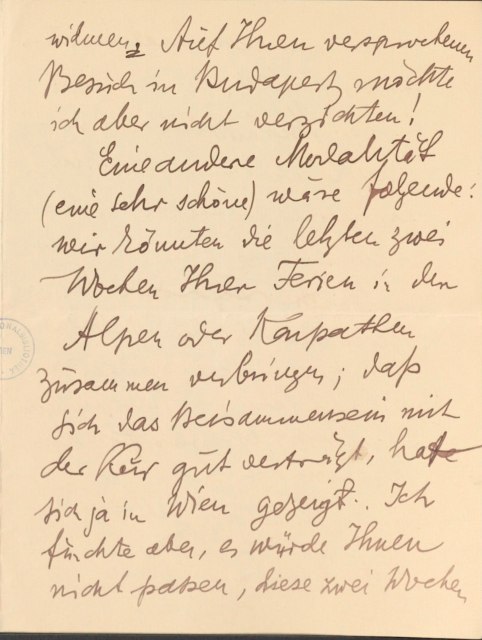 widmen. Auf Ihnen versprochenen
Besuch in Budapest möchte
ich aber nicht verzichten!
Eine andere Modalität
(eine sehr schöne) wäre folgende:
wir könnten die letzten zwei
Wochen Ihrer Ferien in den
Alpen oder Karpathen
zusammen verbringen; daß
sich das Beisammensein mit
der Kur gut verträgt, hat
sich ja in Wien gezeigt. Ich
fürchte aber, es würde Ihnen
nicht passen, diese zwei Wochen